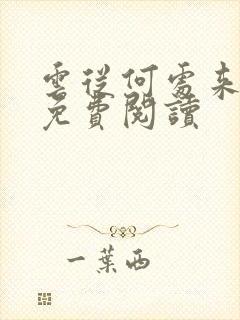 雲從何處來
免費閱讀
一葉西